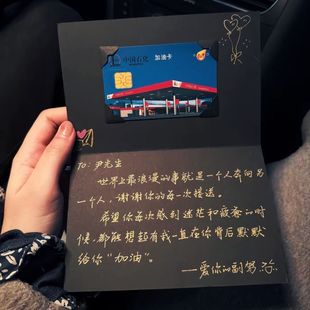 中国石化
加油卡
TO: 尹先生
世界上最浪漫的事就是一个人奔向另
一个人，谢谢你的每一次接送。
希望你每次感到迷茫和疲惫的时
候，都能想起有我一直在你背后默默
给你“加油”。
——爱你的副驾